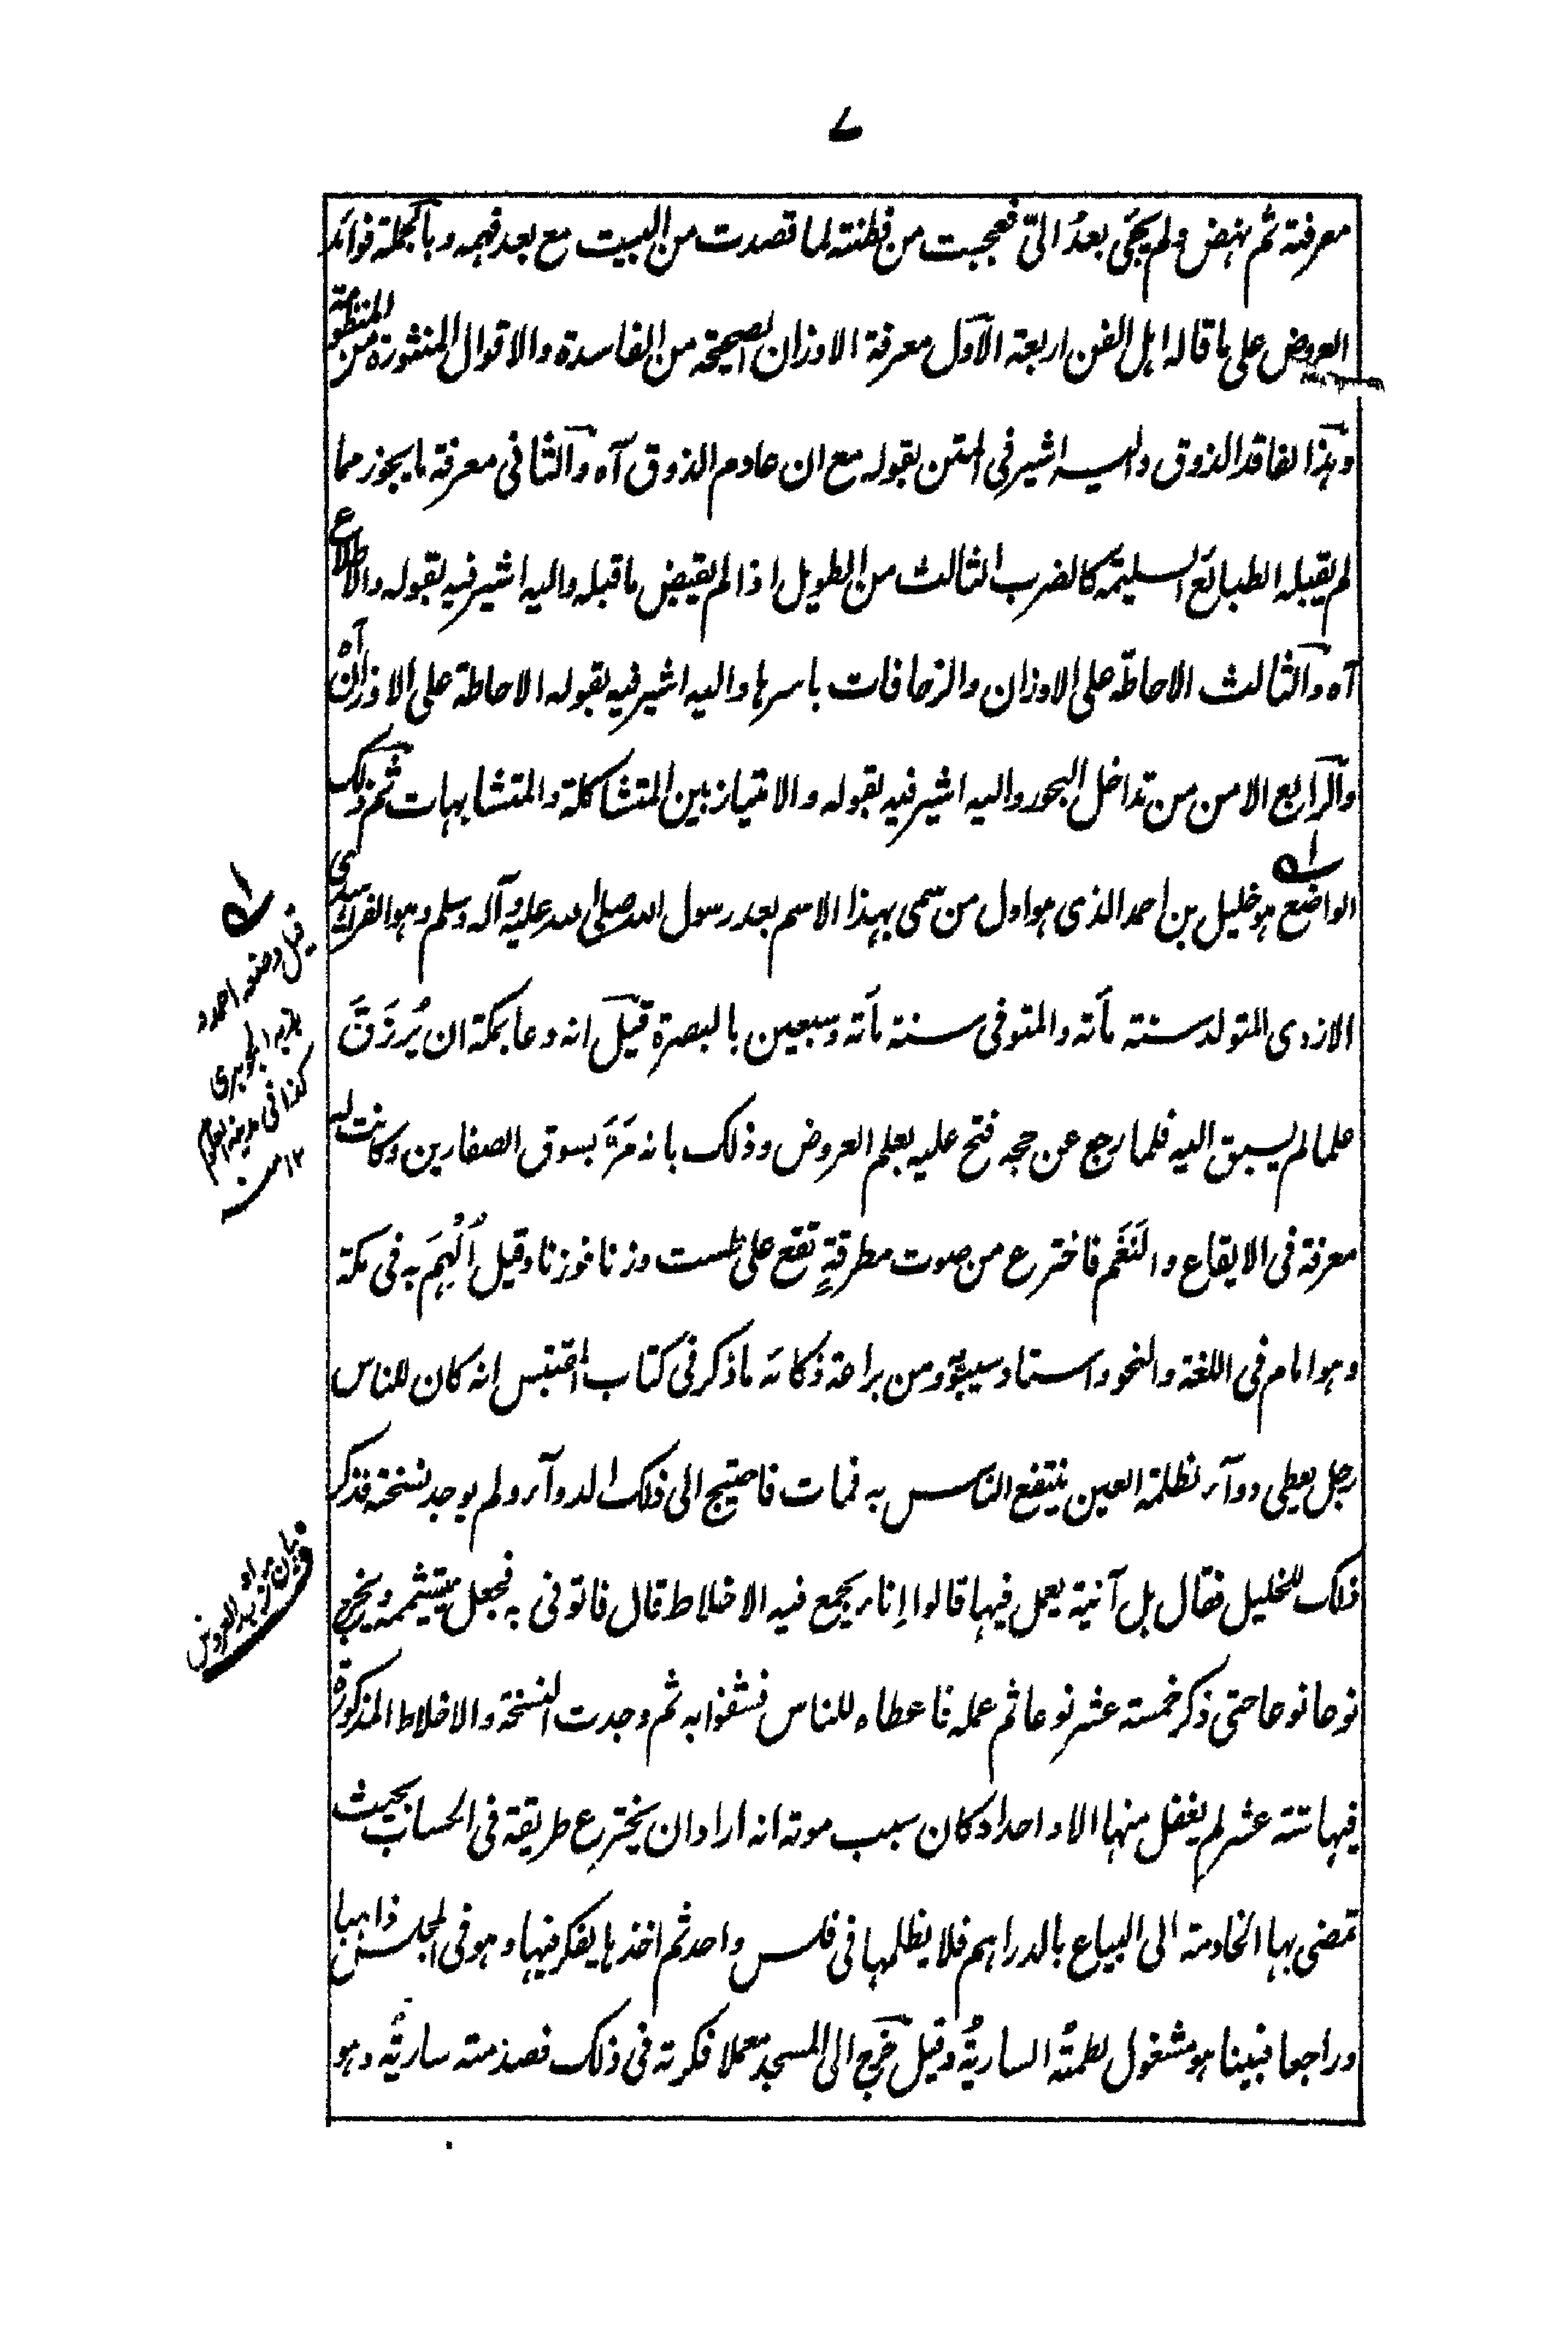 ٧
معرفته ثم نهض ولم يجئ بعدُ الىّ فعجبت من فطنته لما قصدت من البيت مع بعد فهمه وبالجملة فوائد
العروض على ما قاله اهل الفن اربعة الاول معرفة الاوزان الصحيحة من الفاسدة والاقوال المنثورة من المنظومة
وهذا لفاقد الذوق واليه اشير فى المتن بقوله مع ان عادم الذوق آه والثانى معرفة ما يجوز مما
لم يقبله الطبائع السليمة كالضرب الثالث من الطويل اذا لم يقبض ما قبله واليه اشير فيه بقوله والاطلاع
آه والثالث الاحاطة على الاوزان والزحافات باسرها واليه اشير فيه بقوله الاحاطة على الاوزان آه
والرابع الامن من تداخل البحور واليه اشير فيه بقوله والامتياز بين المتشاكلة والمتشابهات ثم ذلك
الواضع هو خليل بن احمد الذى هو اول من سمى بهذا الاسم بعد رسول الله صلى الله عليه وآله وسلم وهو الفراهيدى
الازدى المتولد سنة مأته والمتوفى سنة مأته وسبعين بالبصرة قيل انه دعا بمكة ان يُرزَقَ
علما لم يسبق اليه فلما رجع عن حجه فتح عليه بعلم العروض وذلك بانه مَرَّ بسوق الصفارين وكانت له
معرفة فى الايقاع والنَغَم فاخترع من صوت مطرقةٍ تقع على طست وزنا فوزنا وقيل اُلْهِمَ به فى مكة
وهو امام فى اللغة والنحو واستاد سيبويه ومن براعة ذكائه ما ذكر فى كتاب المقتبس انه كان للناس
رجل يعطى دوآء لظلمة العين ينتفع الناس به فمات فاحتيج الى ذلك الدوآء ولم يوجد نسخة فذكر
ذلك للخليل فقال هل آنية يعمل فيها قالوا اِناء يجمع فيه الاخلاط قال فاتونى به فجعل يتشممه ويخرج
نوعا نوعا حتى ذكر خمسته عشر نوعا ثم عمله فاعطاء للناس فشفوا به ثم وجدت النسخة والاخلاط المذكورة
فيها ستة عشر لم يغفل منها الا واحدا وكان سبب موته انه اراد ان يخترع طريقة فى الحساب بحيث
تمضى بها الخادمة الى البياع بالدراهم فلا يظلمها فى فلس واحد ثم اخذها يفكر فيها وهو فى المجلس ذاهبا
وراجعا فبينا هو مشغول لطمتُه الساريةُ وقيل خرج الى المسجد معملا فكرته فى ذلك فصدمته ساريةٌ وهو
قيل وضعه احمد
الجوهرى
كذا فى
١٢